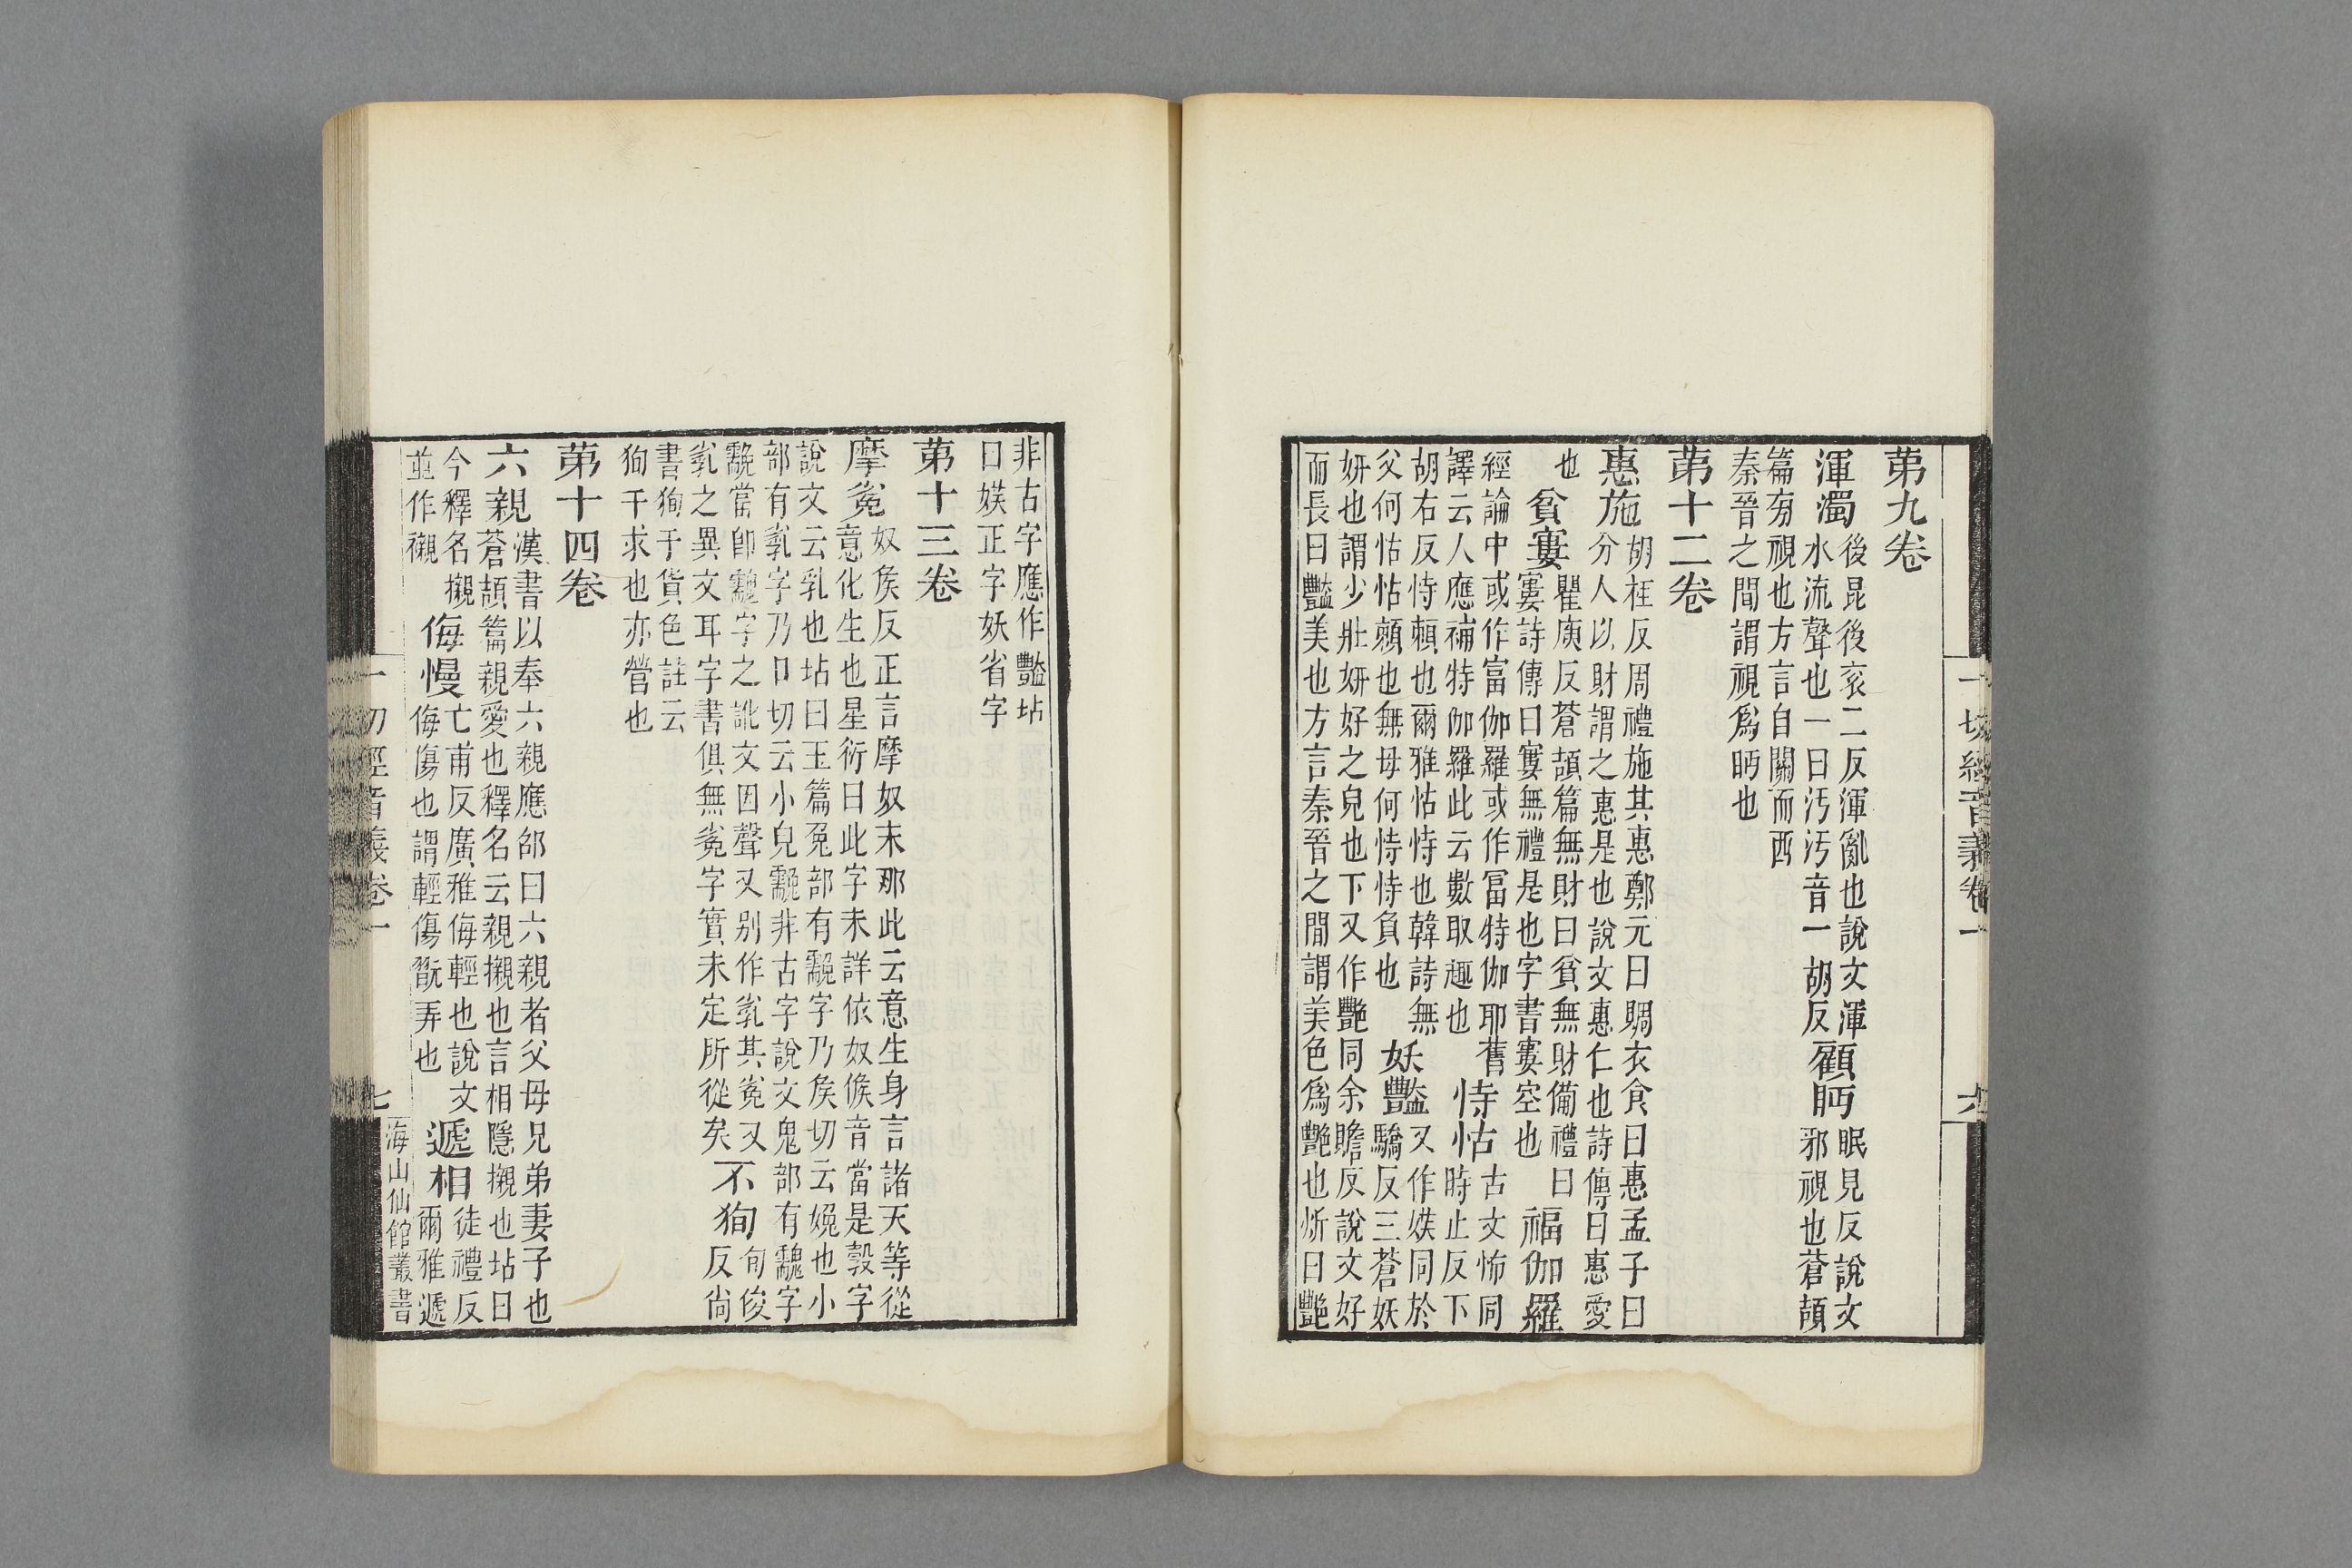 一切經音義卷一 六
第九卷
渾濁 後昆後衮二反渾亂也說文渾水流聲也一曰汚汚音一胡反 顧眄 眠見反說文邪視也蒼頡
篇旁視也方言自關而西秦晉之間謂視爲眄也
第十二卷
惠施 胡桂反周禮施其惠鄭元曰賙衣食曰惠孟子曰分人以財謂之惠是也說文惠仁也詩傳曰惠愛
也 貧寠 瞿庾反蒼頡篇無財曰貧無財備禮曰寠詩傳曰寠無禮是也字書寠空也 福伽羅
經論中或作富伽羅或作冨特伽耶舊譯云人應補特伽羅此云數取趣也 恃怙 古文怖同時止反下
胡右反恃賴也爾雅怙恃也韓詩無父何怙怙賴也無母何恃恃負也 妖豔 又作媄同於驕反三蒼妖
妍也謂少壯妍好之皃也下又作艷同余贍反說文好而長曰豔美也方言秦晉之間謂美色爲艷也炘曰艷
非古字應作豔坫曰媄正字妖省字
第十三卷
摩㝹 奴矦反正言摩奴末那此云意生身言諸天等從意化生也星衍曰此字未詳依奴候音當是㝅字
說文云乳也坫曰玉篇㝹部有䨲字乃矦切云㛯也小部有㝅字乃口切云小兒䨲非古字說文鬼部有䰰字
䨲當卽䰰字之訛文因聲又別作㝅其㝹又㝅之異文耳字書俱無㝹字實未定所從矣 不狥 旬俊反尙
書狥于貨色註云狥干求也亦營也
第十四卷
六親 漢書以奉六親應邵曰六親者父母兄弟妻子也蒼頡篇親愛也釋名云親櫬也言相隱櫬也坫曰
今釋名櫬並作襯 侮慢 亡甫反廣雅侮輕也說文侮傷也謂輕傷翫弄也 遞相 徒禮反爾雅遞
一切經音義卷一 七 海山仙館叢書